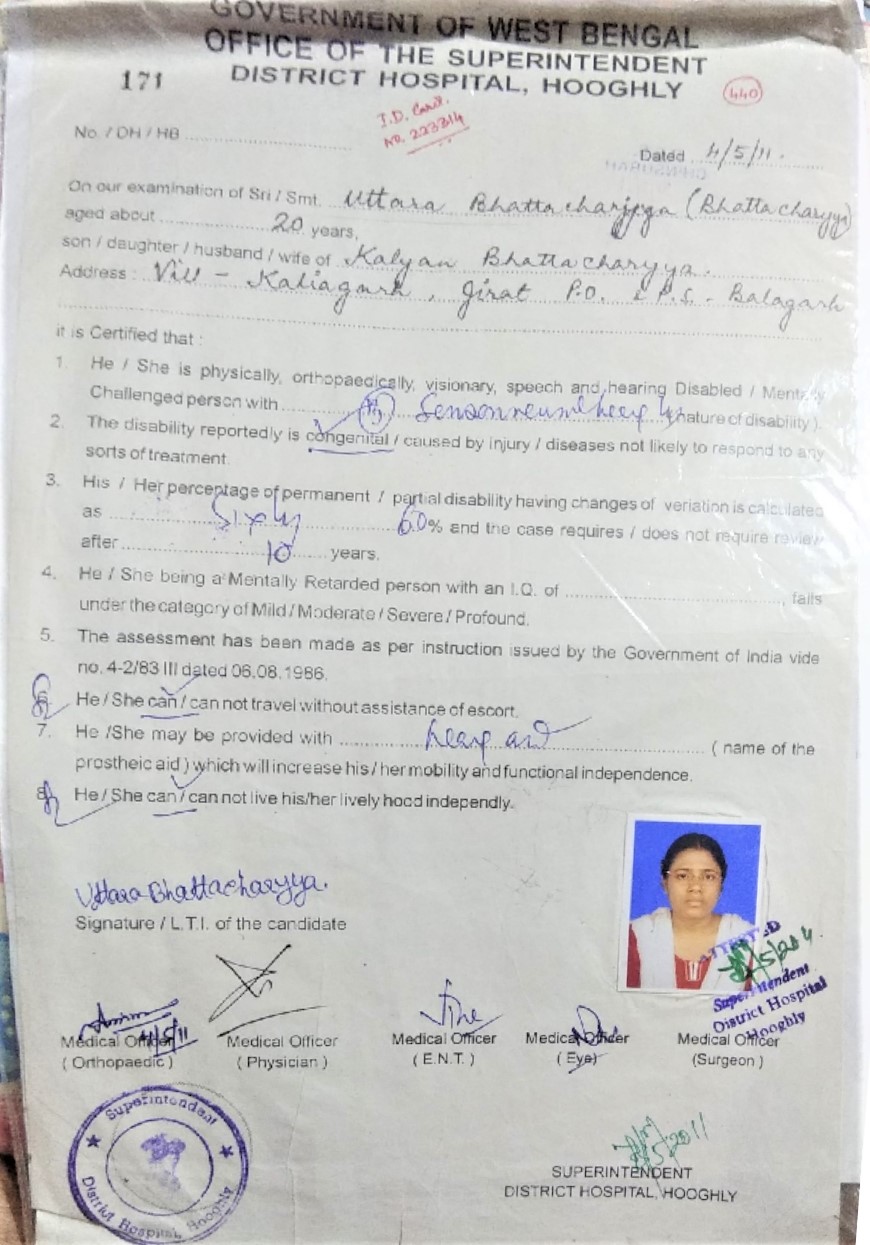 GOVERNMENT OF WEST BENGAL
OFFICE OF THE SUPERINTENDENT
171 DISTRICT HOSPITAL, HOOGHLY 440
I.D. Card.
No. 223314
No. / DH / HB ........................
Dated 4/5/11.
On our examination of Sri / Smt. Uttara Bhattacharjya (Bhattacharyya)
aged about 20 years,
son / daughter / husband / wife of Kalyan Bhattacharyya.
Address : Vill - Kaliagarh, Jirat P.O. & P.S. - Balagarh
it is Certified that :
1. He / She is physically, orthopaedically, visionary, speech and hearing Disabled / Mentally
Challenged person with (B) nature of disability ).
2. The disability reportedly is congenital / caused by injury / diseases not likely to respond to any
sorts of treatment.
3. His / Her percentage of permanent / partial disability having changes of veriation is calculated
as Sixty 60% and the case requires / does not require review
after 10 years.
4. He / She being a Mentally Retarded person with an I.Q. of ........................, falls
under the category of Mild / Moderate / Severe / Profound.
5. The assessment has been made as per instruction issued by the Government of India vide
no. 4-2/83 III dated 06.08.1986.
6. He / She can / can not travel without assistance of escort.
7. He /She may be provided with hearing aid ( name of the
prostheic aid ) which will increase his / her mobility and functional independence.
8. He / She can / can not live his/her lively hood independly.
Uttara Bhattacharyya.
Signature / L.T.I. of the candidate
ATTESTED
Superintendent
District Hospital
Hooghly
4/5/11
Medical Officer Medical Officer Medical Officer Medical Officer Medical Officer
( Orthopaedic ) ( Physician ) ( E.N.T. ) ( Eye) (Surgeon)
Superintendent
District Hospital, Hooghly
SUPERINTENDENT
DISTRICT HOSPITAL, HOOGHLY